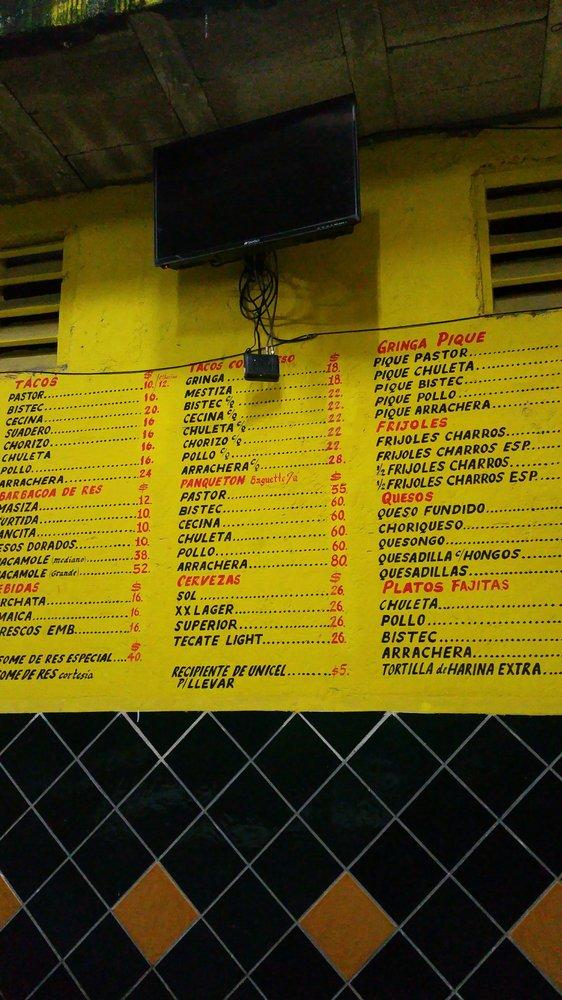 TACOS $
PASTOR 10. 12.
BISTEC 16.
CECINA 20.
SUADERO 16
CHORIZO 16.
CHULETA 16
POLLO 16.
ARRACHERA 24
BARBACOA DE RES $
MASIZA 12.
URTIDA 10.
ANCITA 10.
ESOS DORADOS 10.
ACAMOLE (mediano) 38.
ACAMOLE (Grande) 52.
EBIDAS $
RCHATA 16.
MAICA 16.
RESCOS EMB. 16.
SOME DE RES ESPECIAL 40.
SOME DE RES cortesia
TACOS CO ESO $
GRINGA 18.
MESTIZA 18.
BISTEC c/q 22.
CECINA c/q 22.
CHULETA c/q 22.
CHORIZO c/q 22.
POLLO c/q 22
ARRACHERA c/q 28.
PANQUETON Baguette y/o $
PASTOR 55.
BISTEC 60.
CECINA 60.
CHULETA 60.
POLLO 60.
ARRACHERA 80.
CERVEZAS $
SOL 26.
XX LAGER 26.
SUPERIOR 26.
TECATE LIGHT 26.
RECIPIENTE DE UNICEL $5.
P/LLEVAR
GRINGA PIQUE
PIQUE PASTOR
PIQUE CHULETA
PIQUE BISTEC
PIQUE POLLO
PIQUE ARRACHERA
FRIJOLES
FRIJOLES CHARROS
FRIJOLES CHARROS ESP.
½ FRIJOLES CHARROS
½ FRIJOLES CHARROS ESP.
QUESOS
QUESO FUNDIDO
CHORIQUESO
QUESONGO
QUESADILLA c/HONGOS
QUESADILLAS
PLATOS FAJITAS
CHULETA
POLLO
BISTEC
ARRACHERA
TORTILLA de HARINA EXTRA